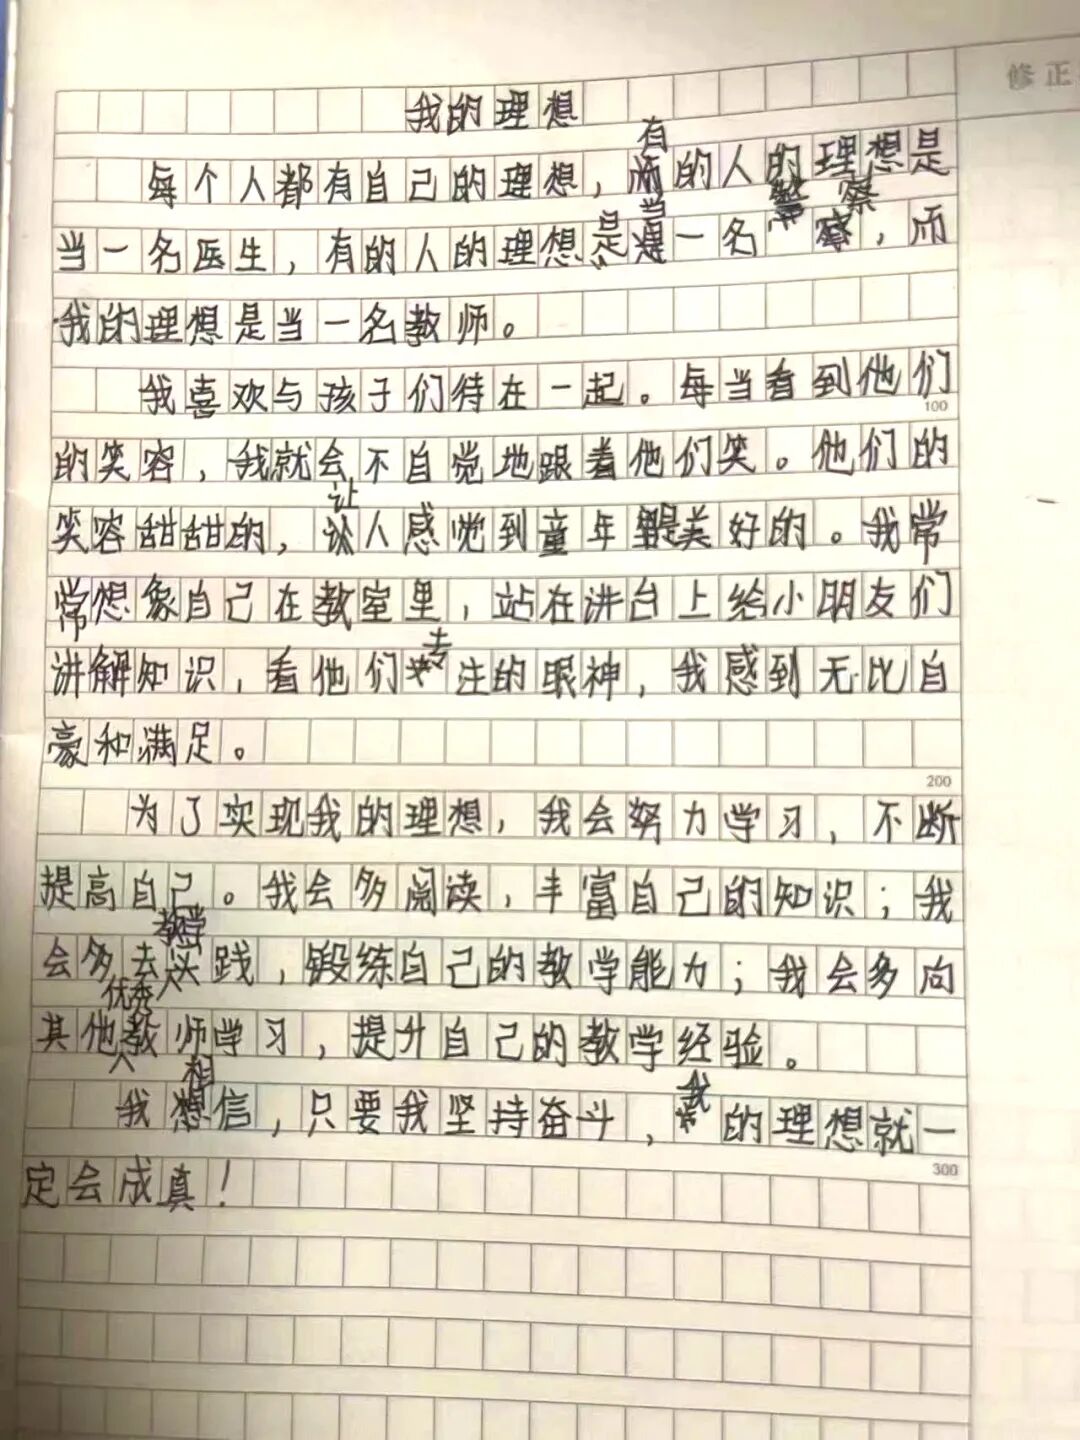 修正
我的理想
每个人都有自己的理想，有的人的理想是
当一名医生，有的人的理想是当一名警察，而
我的理想是当一名教师。
我喜欢与孩子们待在一起。每当看到他们
100
的笑容，我就会不自觉地跟着他们笑。他们的
笑容甜甜的，让人感觉到童年是美好的。我常
常想象自己在教室里，站在讲台上给小朋友们
讲解知识，看他们专注的眼神，我感到无比自
豪和满足。
200
为了实现我的理想，我会努力学习，不断
提高自己。我会多阅读，丰富自己的知识；我
会多去教学实践，锻练自己的教学能力；我会多向
其他优秀教师学习，提升自己的教学经验。
我相信，只要我坚持奋斗，我的理想就一
300
定会成真！